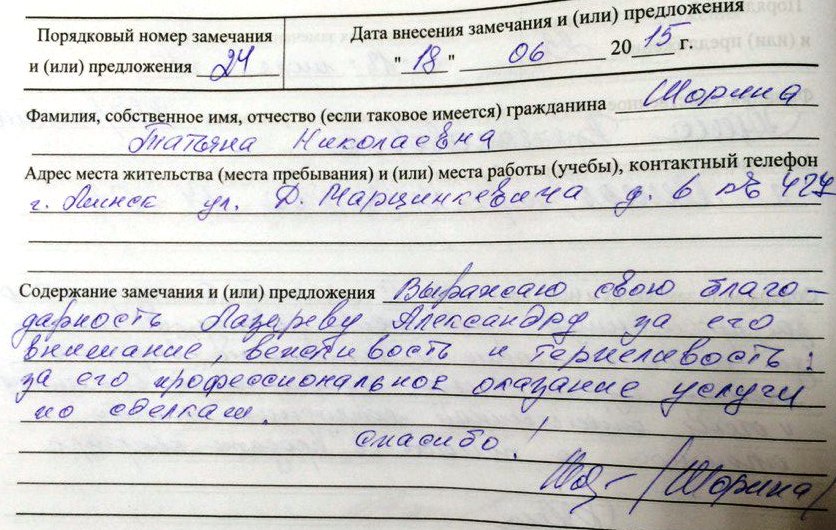 Порядковый номер замечания
и (или) предложения 24
Дата внесения замечания и (или) предложения
" 18 " 06 2015 г.
Фамилия, собственное имя, отчество (если таковое имеется) гражданина Шорина
Татьяна Николаевна
Адрес места жительства (места пребывания) и (или) места работы (учебы), контактный телефон
г. Минск ул. Д. Марцинкевича д. 6 427
Содержание замечания и (или) предложения Выражаю свою благо-
дарность Лазареву Александру за его
внимание, вежливость и терпеливость;
за его профессиональное оказание услуги
по сделкам.
спасибо!
/Шорина/